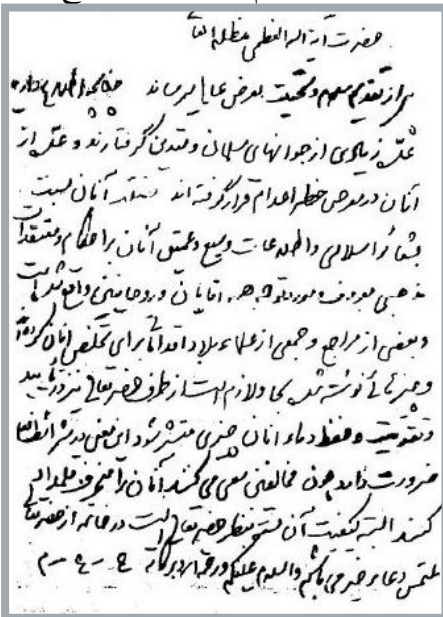 حضرت آیة الله العظمی مدظله العالی
پس از تقدیم سلام و تحیت بعرض عالی میرساند چنانچه اطلاع دارید
عدّه زیادی از جوانهای مسلمان و متدین گرفتارند و عدّه از
آنان در معرض خطر اعدام قرار گرفته اند آنان نسبت
بشعائر اسلامی و اطلاعات وسیع و عمیق آنان براحکام و معتقدات
مذهبی معروف و مورد توجه همه آقایان و روحانیین واقع شده است
و بعضی از مراجع و جمعی از علماء بلاد اقداماتی برای تخلص آنان کرده اند
و چیزهائی نوشته شده بجا و لازم است از طرف حضرتعالی نیز در تأیید
و تقویت و حفظ دماء آنان چیزی منتشر شود این معنی در شرائط فعلی
ضرورت دارد چون مخالفین سعی می کنند آنان را منحرف قلمداد
کنند البته کیفیت آن بسته بنظر حضرتعالی است در خاتمه از حضرتعالی
ملتمس دعاء خیر می باشم والسلام علیکم ورحمة الله وبرکاته ح - ع - م